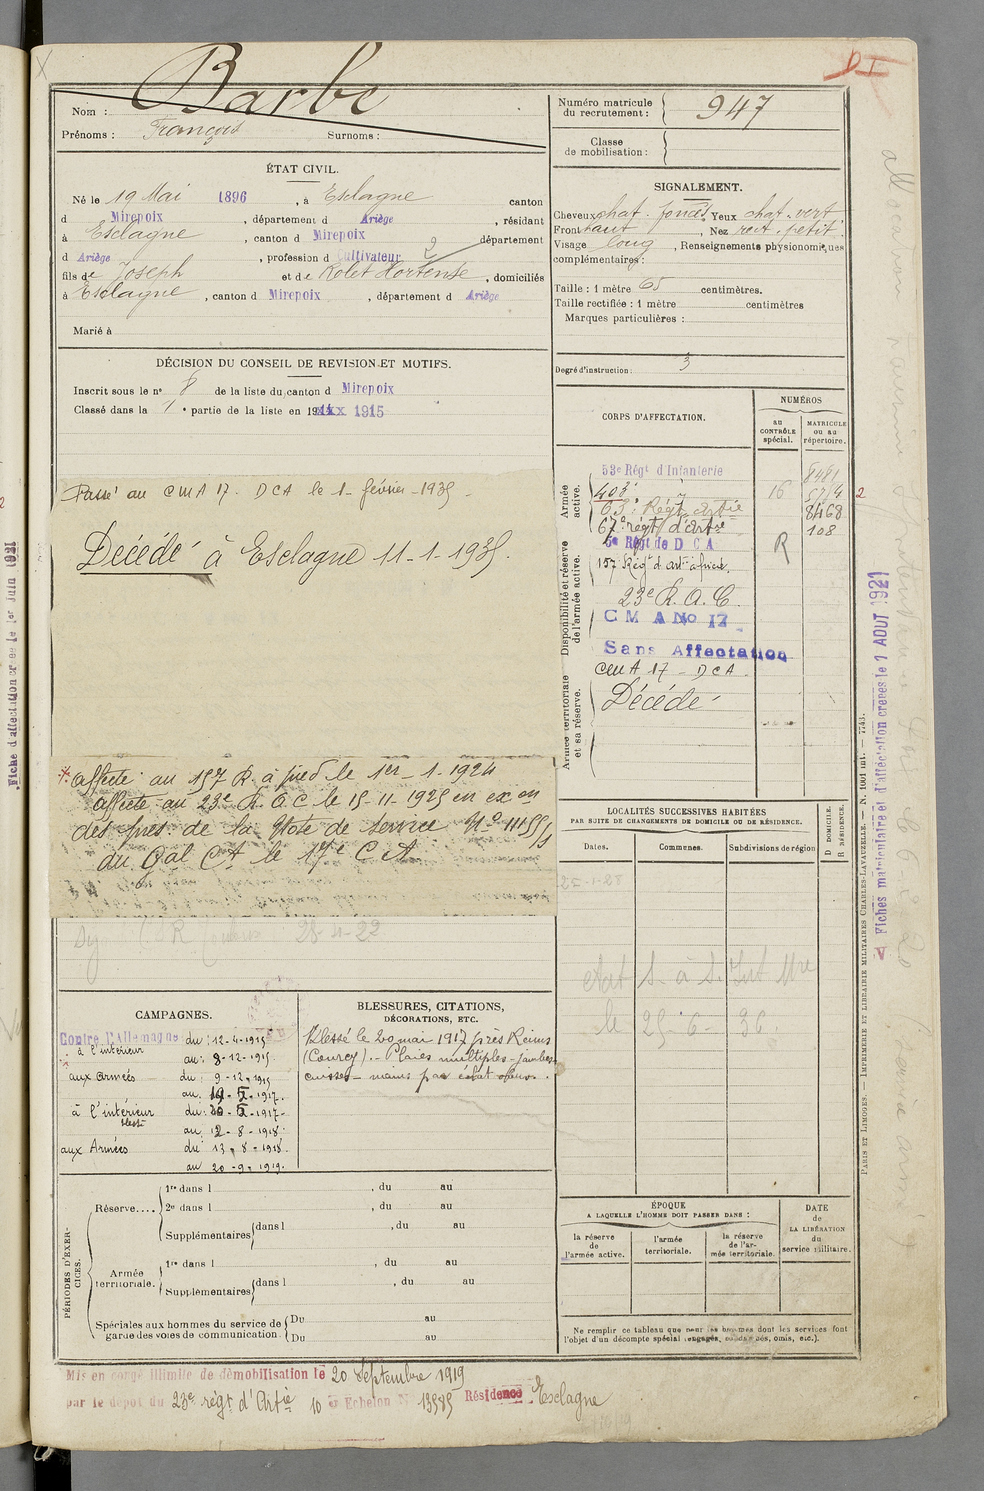 Barbe
Nom :
Prénoms : François Surnoms :
Numéro matricule du recrutement : 947
Classe de mobilisation :
ÉTAT CIVIL.
Né le 19 Mai 1896, à Esclagne canton
d Mirepoix, département d Ariège, résidant
à Esclagne, canton d Mirepoix département
d Ariège, profession d cultivateur
fils de Joseph et de Rolet Hortense, domiciliés
à Esclagne, canton d Mirepoix, département d Ariège
Marié à
SIGNALEMENT.
Cheveux chat. foncés Yeux chat. vert
Front haut, Nez rect. petit.
Visage long, Renseignements physionomiques
complémentaires :
Taille : 1 mètre 65 centimètres.
Taille rectifiée : 1 mètre centimètres
Marques particulières :
Degré d'instruction : 3
DÉCISION DU CONSEIL DE REVISION ET MOTIFS.
Inscrit sous le n° 8 de la liste du canton d Mirepoix
Classé dans la 1 e partie de la liste en 1915
Passé au CMA 17. DCA le 1- février-1935-
Décédé à Esclagne 11-1-1935.
affecté au 157 R. à pied le 1er-1-1924
affecté au 23e R.A.C le 15-11-1925 en exon
des pres. de la Note de service N°
du Gal Ct le 17e C A
CORPS D'AFFECTATION.
NUMÉROS
au CONTRÔLE spécial.
MATRICULE ou au répertoire.
Armée active.
53e Régt d'Infanterie 8481
403e 16 5714 2
63e Régt Artie 8468
67e régt d'Artie 108
Disponibilité et réserve de l'armée active.
Régt de D C A R
157 Régt d'art à pied.
23e R.A.C.
C M A No 17
Sans Affectation
CMA 17 - DCA
Armée territoriale et sa réserve.
Décédé
LOCALITÉS SUCCESSIVES HABITÉES
PAR SUITE DE CHANGEMENTS DE DOMICILE OU DE RÉSIDENCE.
Dates.
Communes.
Subdivisions de région
D DOMICILE.
R RÉSIDENCE.
le 25-6-36.
28-11-22
CAMPAGNES.
Contre l'Allemagne du : 12-4-1915
à l'intérieur au : 8-12-1915
aux armées du : 9-12-1915
au 19-5-1917.
à l'intérieur du : 20-5-1917-
blessé au 12-8-1918.
aux Armées du 13-8-1918.
au 20-9-1919.
BLESSURES, CITATIONS,
DÉCORATIONS, ETC.
Blessé le 20 mai 1917 près Reims
(Courcy).- Plaies multiples - jambes
cuisses - mains par éclat obus.
PÉRIODES D'EXERCICES.
Réserve....
1re dans l , du au
2e dans l , du au
Supplémentaires dans l , du au
Armée territoriale.
1re dans l , du au
Supplémentaires dans l , du au
Spéciales aux hommes du service de garde des voies de communication.
Du au
Du au
ÉPOQUE
A LAQUELLE L'HOMME DOIT PASSER DANS :
la réserve de l'armée active.
l'armée territoriale.
la réserve de l'armée territoriale.
DATE de LA LIBÉRATION du service militaire.
Ne remplir ce tableau que pour les hommes dont les services font
l'objet d'un décompte spécial (engagés, condamnés, omis, etc.).
Mis en congé illimité de démobilisation le 20 Septembre 1919
par le dépôt du 23e régt d'Artie 10 e Echelon N° 13585 Résidence Esclagne
PARIS ET LIMOGES. — IMPRIMERIE ET LIBRAIRIE MILITAIRES CHARLES-LAVAUZELLE. — N. 1001 int. — 7743.
Fiches matriculaire et d'affectation créées le 1 AOUT 1921